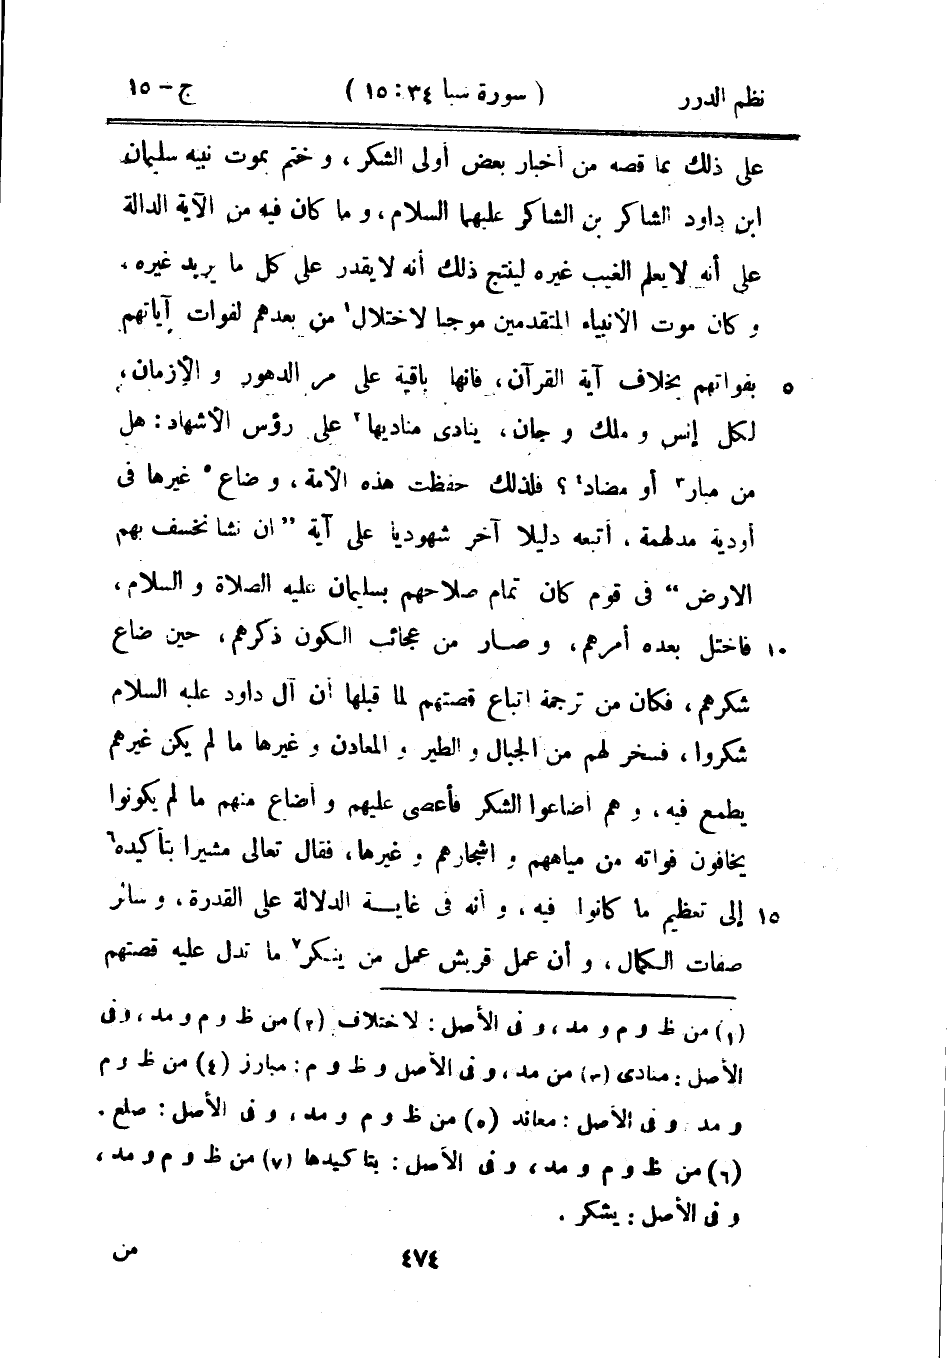 نظم الدرر ( سورة سبا ٣٤ : ١٥ ) ج – ١٥
على ذلك بما قصه من أخبار بعض أولى الشكر ، و ختم بموت نبيه سليمان
ابن داود الشاكر بن الشاكر عليهما السلام ، و ما كان فيه من الآية الدالة
على أنه لا يعلم الغيب غيره لينتج ذلك أنه لا يقدر على كل ما يريد غيره ،
و كان موت الأنبياء المتقدمين موجبا لاختلال١ من بعدهم لفوات آياتهم
٥ بفواتهم بخلاف آية القرآن ، فانها باقية على مر الدهور و الأزمان ،
لكل إنس و ملك و جان ، ينادى مناديها٢ على رؤس الأشهاد : هل
من مبار٣ أو مضاد٤ ؟ فلذلك حفظت هذه الأمة ، و ضاع٥ غيرها فى
أودية مدلهمة ، أتبعه دليلا آخر شهوديا على آية ” ان نشا نخسف بهم
الارض “ فى قوم كان تمام صلاحهم بسليمان عليه الصلاة و السلام ،
١٠ فاختل بعده أمرهم ، و صار من عجائب الكون ذكرهم ، حين ضاع
شكرهم ، فكان من ترجمة اتباع قصتهم لما قبلها أن آل داود عليه السلام
شكروا ، فسخر لهم من الجبال و الطير و المعادن و غيرها ما لم يكن غيرهم
يطمع فيه ، و هم أضاعوا الشكر فأعصى عليهم و أضاع منهم ما لم يكونوا
يخافون فواته من مياههم و اشجارهم و غيرها ، فقال تعالى مشيرا بتأكيده٦
١٥ إلى تعظيم ما كانوا فيه ، و أنه فى غاية الدلالة على القدرة ، و سائر
صفات الكمال ، و أن عمل قريش عمل من ينكر٧ ما تدل عليه قصتهم
(١) من ظ و م و مد ، و فى الأصل : لاختلاف (٢) من ظ و م و مد ، و فى
الأصل : منادى (٣) من مد ، و فى الأصل و ظ و م : مبارز (٤) من ظ و م
و مد و فى الأصل : معاند (٥) من ظ و م و مد ، و فى الأصل : صلع .
(٦) من ظ و م و مد ، و فى الأصل : بتاكيدها (٧) من ظ و م و مد ،
و فى الأصل : يشكر .
٤٧٤ من